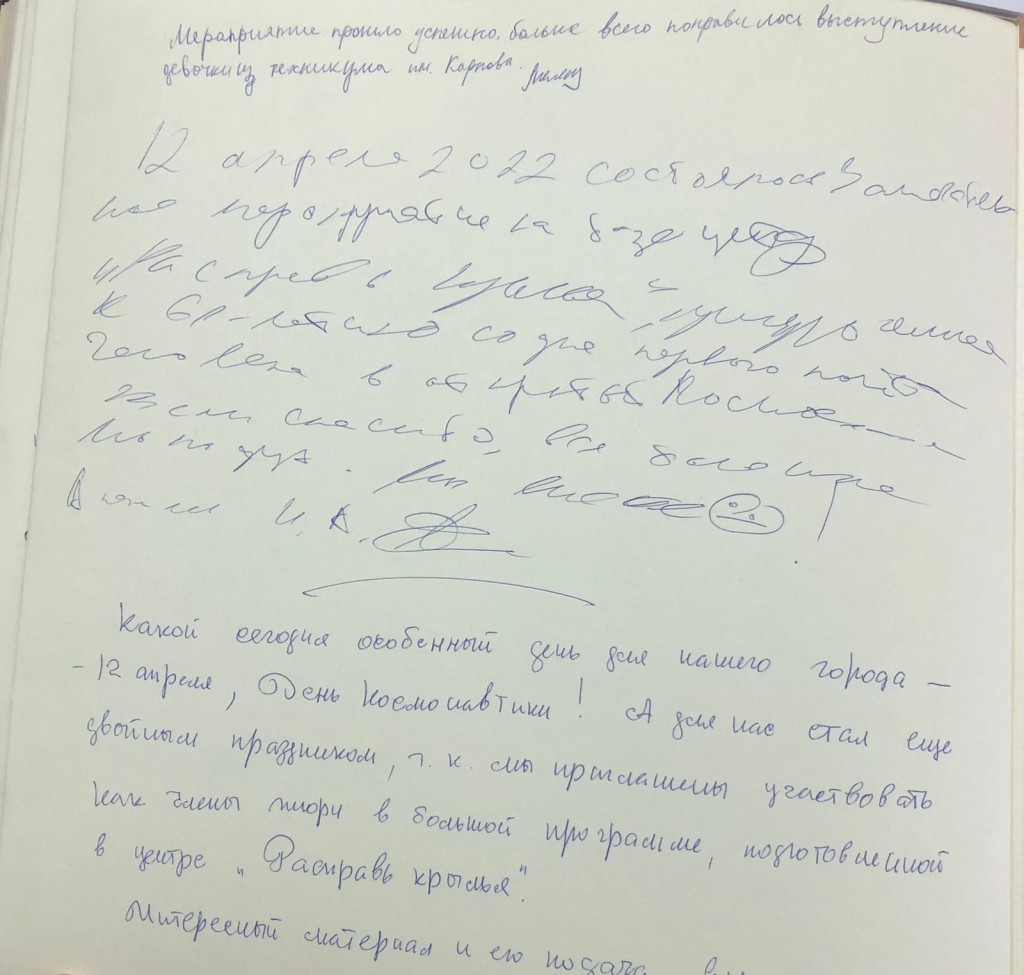 Мероприятие прошло успешно, больше всего понравилось выступление
девочки из техникума им. Карпова.
12 апреля 2022 состоялось Замечатель
ное мероприятие на базе центра
"Расправь крылья", приуроченная
к 61-летию со дня первого полёта
человека в открытый Космос
Всем спасибо, все было
И.А.
Какой сегодня особенный день для нашего города —
- 12 апреля, День Космонавтики! А для нас стал еще
двойным праздником, т.к. мы приглашены участвовать
как члены жюри в большой программе, подготовленной
в центре "Расправь крылья".
Интересный материал и его подача